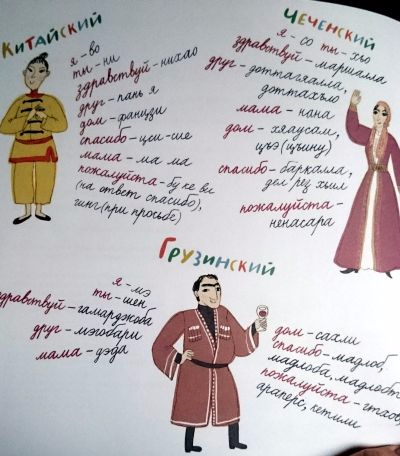 Китайский
я – во
ты – ни
здравствуй – нихао
друг – пань я
дом – фанцзи
спасибо – цси-сие
мама – ма ма
пожалуйста – бу ке ве
(на ответ спасибо),
чинг (при просьбе)
Чеченский
я – со ты – хьо
здравствуй – маршалла
друг – доттагяалла,
доттахьло
мама – нана
дом – хяаусам,
цхэ (цъину)
спасибо – баркалла,
дел рез хьил
пожалуйста –
ненасара
Грузинский
я – мэ
ты – шен
здравствуй – гамарджоба
друг – мэгобари
мама – дэда
дом – сахли
спасибо – мадлоб,
мадлоба, мадлобт
пожалуйста – гтхов,
араперс, кетили